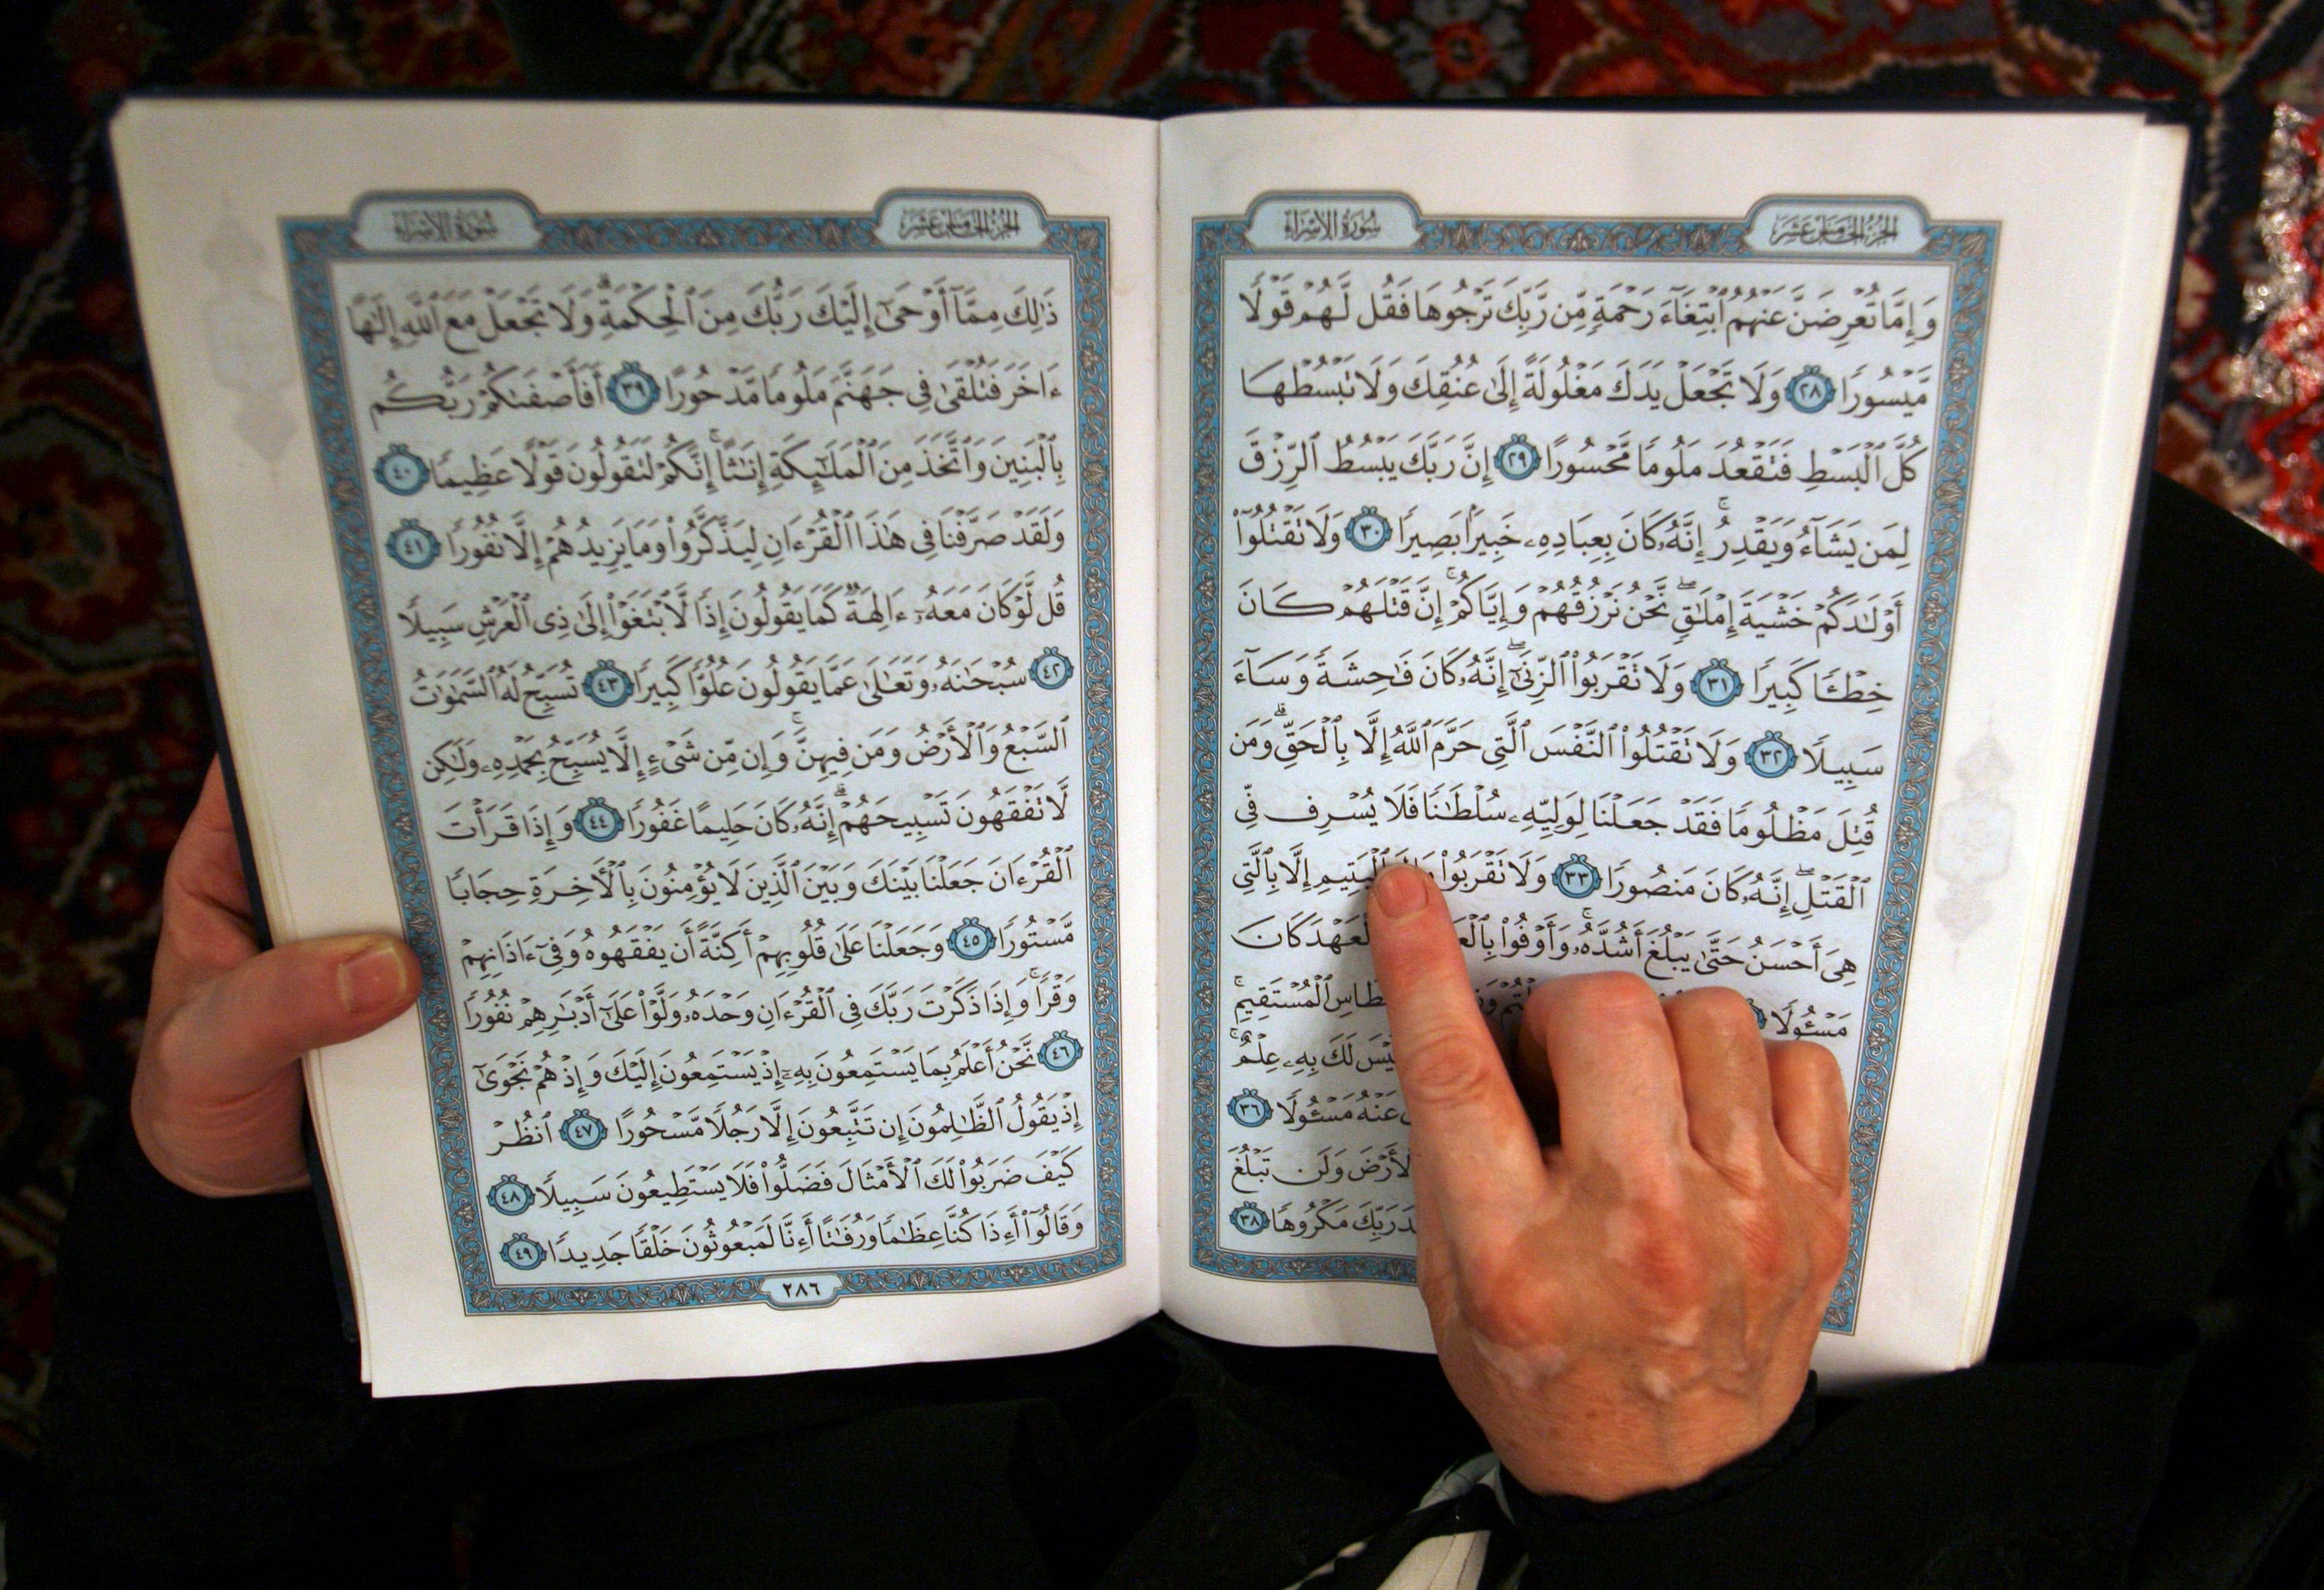 الجزء الخامس عشر
سورة الإسراء
وَإِمَّا تُعْرِضَنَّ عَنْهُمُ ٱبْتِغَآءَ رَحْمَةٍ مِّن رَّبِّكَ تَرْجُوهَا فَقُل لَّهُمْ قَوْلًا
مَّيْسُورًا ٢٨ وَلَا تَجْعَلْ يَدَكَ مَغْلُولَةً إِلَىٰ عُنُقِكَ وَلَا تَبْسُطْهَا
كُلَّ ٱلْبَسْطِ فَتَقْعُدَ مَلُومًا مَّحْسُورًا ٢٩ إِنَّ رَبَّكَ يَبْسُطُ ٱلرِّزْقَ
لِمَن يَشَآءُ وَيَقْدِرُ ۚ إِنَّهُۥ كَانَ بِعِبَادِهِۦ خَبِيرًۢا بَصِيرًا ٣٠ وَلَا تَقْتُلُوٓا۟
أَوْلَـٰدَكُمْ خَشْيَةَ إِمْلَـٰقٍ ۖ نَّحْنُ نَرْزُقُهُمْ وَإِيَّاكُمْ ۚ إِنَّ قَتْلَهُمْ كَانَ
خِطْـًٔا كَبِيرًا ٣١ وَلَا تَقْرَبُوا۟ ٱلزِّنَىٰٓ ۖ إِنَّهُۥ كَانَ فَـٰحِشَةً وَسَآءَ
سَبِيلًا ٣٢ وَلَا تَقْتُلُوا۟ ٱلنَّفْسَ ٱلَّتِى حَرَّمَ ٱللَّهُ إِلَّا بِٱلْحَقِّ ۗ وَمَن
قُتِلَ مَظْلُومًا فَقَدْ جَعَلْنَا لِوَلِيِّهِۦ سُلْطَـٰنًا فَلَا يُسْرِف فِّى
ٱلْقَتْلِ ۖ إِنَّهُۥ كَانَ مَنصُورًا ٣٣ وَلَا تَقْرَبُوا۟ ٱلْيَتِيمِ إِلَّا بِٱلَّتِى
هِىَ أَحْسَنُ حَتَّىٰ يَبْلُغَ أَشُدَّهُۥ ۚ وَأَوْفُوا۟ ٱلْعَهْدَ كَانَ
مَسْـُٔولًا ٱلْمُسْتَقِيمِ ۚ
لَيْسَ لَكَ بِهِۦ عِلْمٌ ۚ
عَنْهُ مَسْـُٔولًا ٣٦
ٱلْأَرْضَ وَلَن تَبْلُغَ
رَبِّكَ مَكْرُوهًا ٣٨
الجزء الخامس عشر
سورة الإسراء
ذَٰلِكَ مِمَّآ أَوْحَىٰٓ إِلَيْكَ رَبُّكَ مِنَ ٱلْحِكْمَةِ ۗ وَلَا تَجْعَلْ مَعَ ٱللَّهِ إِلَـٰهًا
ءَاخَرَ فَتُلْقَىٰ فِى جَهَنَّمَ مَلُومًا مَّدْحُورًا ٣٩ أَفَأَصْفَىٰكُمْ رَبُّكُم
بِٱلْبَنِينَ وَٱتَّخَذَ مِنَ ٱلْمَلَـٰٓئِكَةِ إِنَـٰثًا ۚ إِنَّكُمْ لَتَقُولُونَ قَوْلًا عَظِيمًا ٤٠
وَلَقَدْ صَرَّفْنَا فِى هَـٰذَا ٱلْقُرْءَانِ لِيَذَّكَّرُوا۟ وَمَا يَزِيدُهُمْ إِلَّا نُفُورًا ٤١
قُل لَّوْ كَانَ مَعَهُۥٓ ءَالِهَةٌ كَمَا يَقُولُونَ إِذًا لَّٱبْتَغَوْا۟ إِلَىٰ ذِى ٱلْعَرْشِ سَبِيلًا
٤٢ سُبْحَـٰنَهُۥ وَتَعَـٰلَىٰ عَمَّا يَقُولُونَ عُلُوًّا كَبِيرًا ٤٣ تُسَبِّحُ لَهُ ٱلسَّمَـٰوَٰتُ
ٱلسَّبْعُ وَٱلْأَرْضُ وَمَن فِيهِنَّ ۚ وَإِن مِّن شَىْءٍ إِلَّا يُسَبِّحُ بِحَمْدِهِۦ وَلَـٰكِن
لَّا تَفْقَهُونَ تَسْبِيحَهُمْ ۗ إِنَّهُۥ كَانَ حَلِيمًا غَفُورًا ٤٤ وَإِذَا قَرَأْتَ
ٱلْقُرْءَانَ جَعَلْنَا بَيْنَكَ وَبَيْنَ ٱلَّذِينَ لَا يُؤْمِنُونَ بِٱلْأَخِرَةِ حِجَابًا
مَّسْتُورًا ٤٥ وَجَعَلْنَا عَلَىٰ قُلُوبِهِمْ أَكِنَّةً أَن يَفْقَهُوهُ وَفِىٓ ءَاذَانِهِمْ
وَقْرًا ۚ وَإِذَا ذَكَرْتَ رَبَّكَ فِى ٱلْقُرْءَانِ وَحْدَهُۥ وَلَّوْا۟ عَلَىٰٓ أَدْبَـٰرِهِمْ نُفُورًا
٤٦ نَّحْنُ أَعْلَمُ بِمَا يَسْتَمِعُونَ بِهِۦٓ إِذْ يَسْتَمِعُونَ إِلَيْكَ وَإِذْ هُمْ نَجْوَىٰٓ
إِذْ يَقُولُ ٱلظَّـٰلِمُونَ إِن تَتَّبِعُونَ إِلَّا رَجُلًا مَّسْحُورًا ٤٧ ٱنظُرْ
كَيْفَ ضَرَبُوا۟ لَكَ ٱلْأَمْثَالَ فَضَلُّوا۟ فَلَا يَسْتَطِيعُونَ سَبِيلًا ٤٨
وَقَالُوٓا۟ أَءِذَا كُنَّا عِظَـٰمًا وَرُفَـٰتًا أَءِنَّا لَمَبْعُوثُونَ خَلْقًا جَدِيدًا ٤٩
٢٨٦